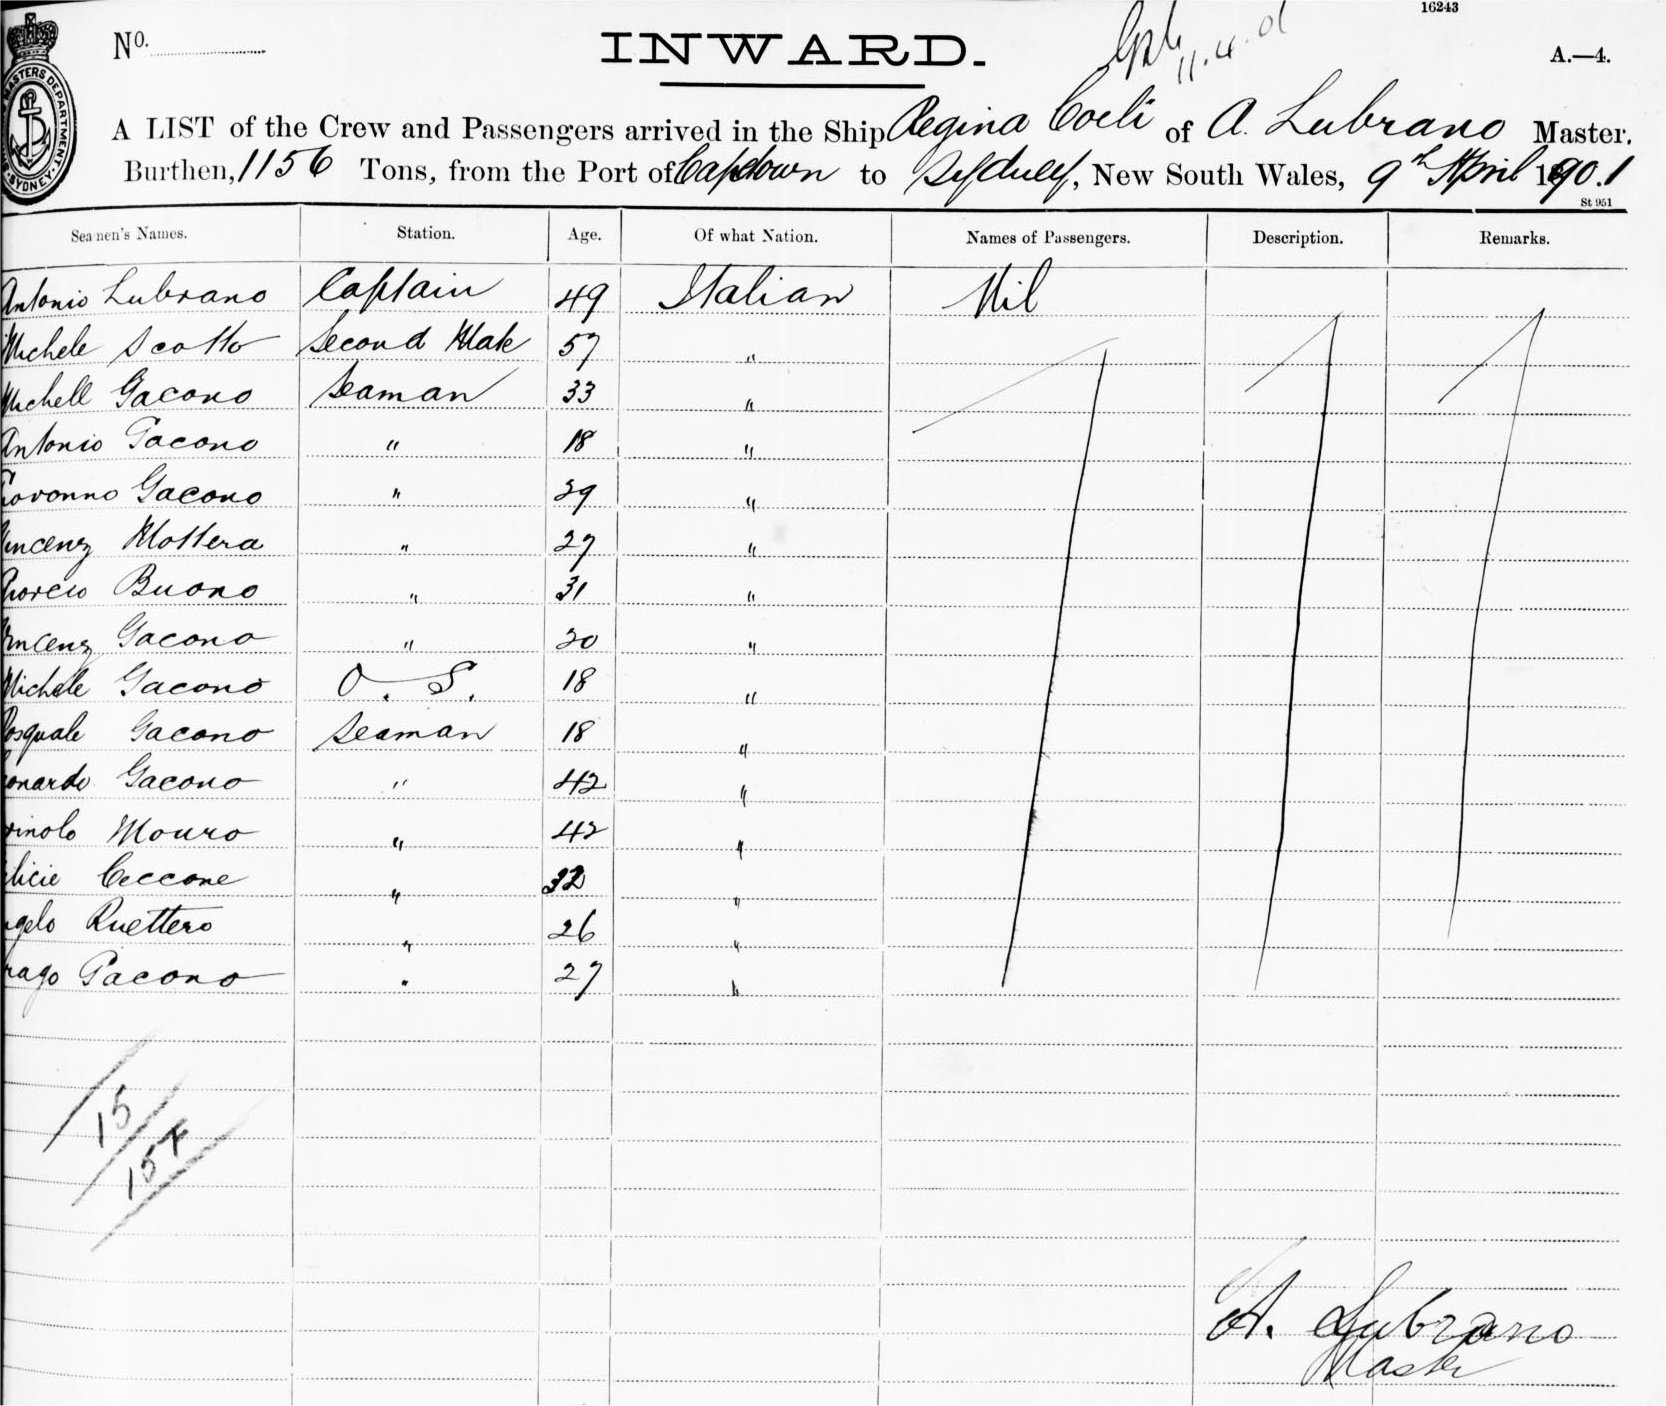 16243
No.
INWARD.
11.4.01
A.—4.
A LIST of the Crew and Passengers arrived in the Ship Regina Coeli of A. Lubrano Master.
Burthen, 1156 Tons, from the Port of Capetown to Sydney, New South Wales, 9th April 1901
St 951
MASTERS DEPARTMENT SYDNEY
Seamen's Names. Station. Age. Of what Nation. Names of Passengers. Description. Remarks.
Antonio Lubrano Captain 49 Italian Nil
Michele Scotto Second Mate 57 "
Michell Gacono Seaman 33 "
Antonio Gacono " 18 "
Govonno Gacono " 29 "
Vincenz Mottera " 27 "
Buono " 31 "
Vincenz Gacono " 20 "
Michele Gacono O. S. 18 "
Pasquale Gacono Seaman 18 "
onardo Gacono " 42 "
Mouro " 42 "
licie Ceccone " 32 "
ngelo Ruettero " 26 "
rago Gacono " 27 "
15
15+
A. Lubrano
Master